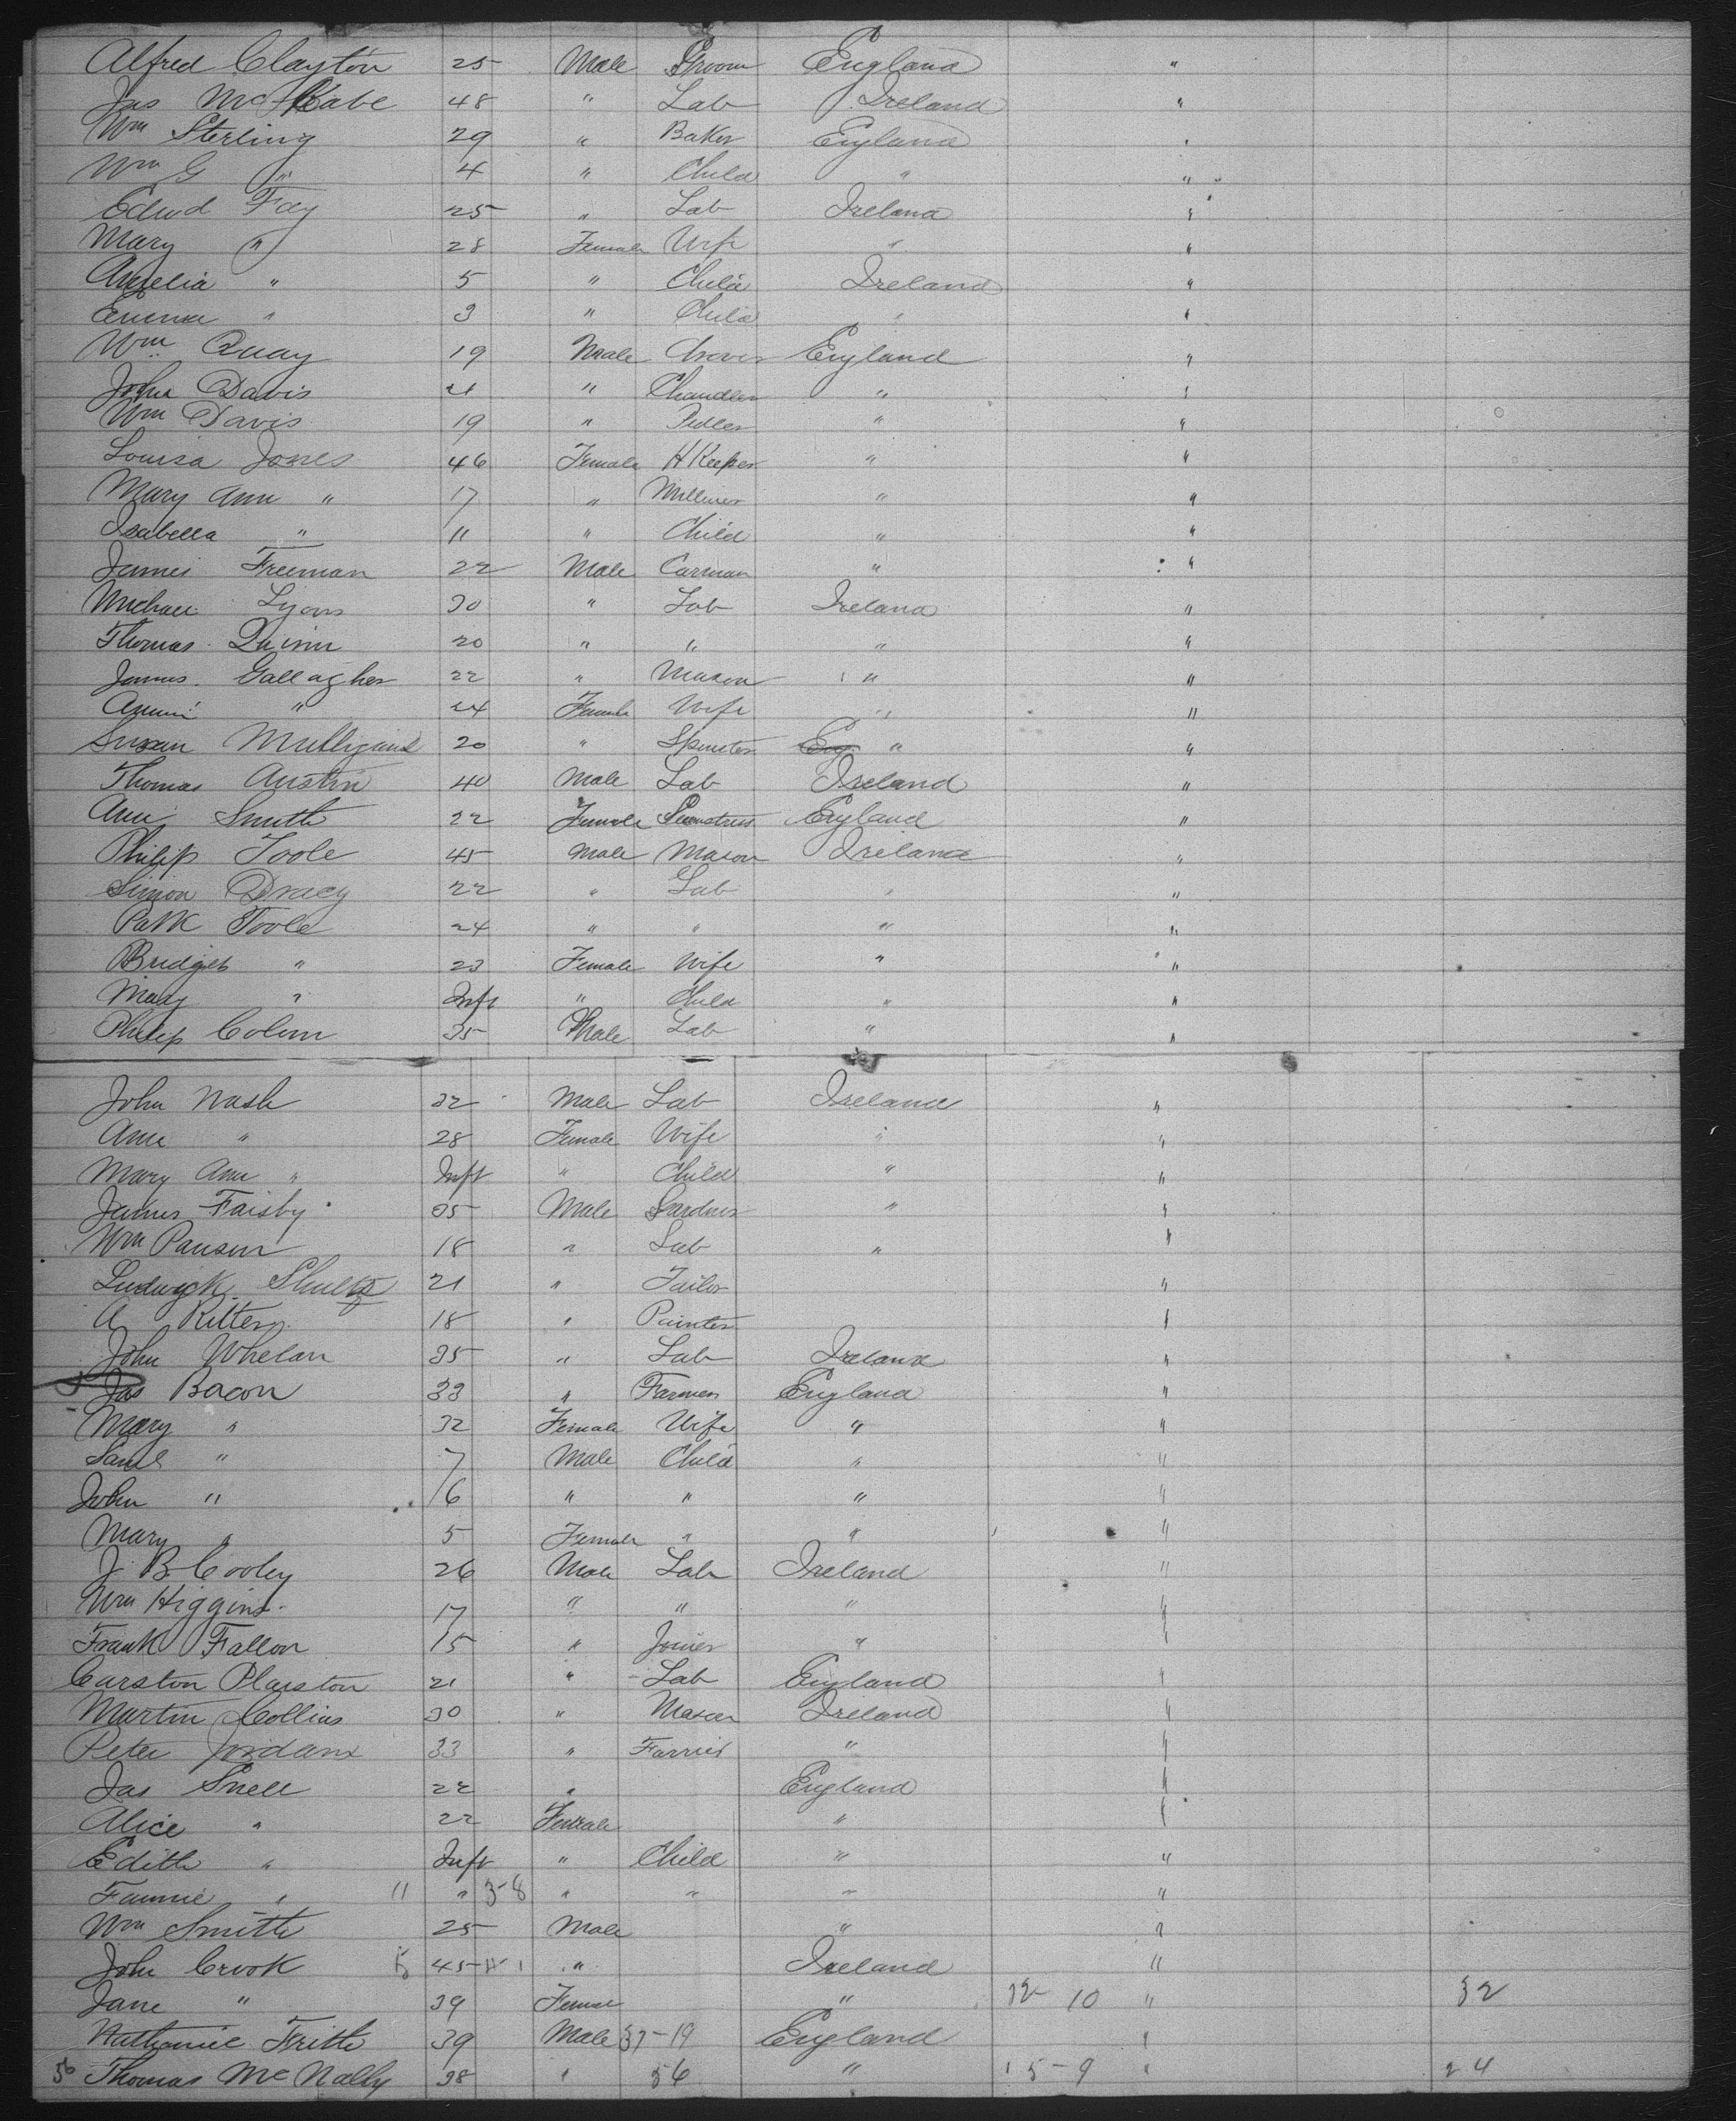 Alfred Clayton 25 Male Groom England "
Jas McCabe 48 " Lab Ireland "
Wm Sterling 29 " Baker England "
Wm G " 4 " Child " "
Edwd Fay 25 " Lab Ireland "
Mary " 28 Female Wife " "
Amelia " 5 " Child Ireland "
Emma " 3 " Child " "
Wm Quay 19 Male Drover England "
John Davis 21 " Chandler " "
Wm Davis 19 " Pedler " "
Louisa Jones 46 Female H Keeper " "
Mary Ann " 17 " Milliner " "
Isabella " 11 " Child " "
James Freeman 22 Male Carman " "
Michael Lyons 30 " Lab Ireland "
Thomas Quinn 20 " " " "
James Gallagher 22 " Mason " "
Annie " 24 Female Wife " "
Susan Mulligand 20 " Spinster Eng " "
Thomas Austin 40 Male Lab Ireland "
Ann Smith 22 Female Seamstress England "
Philip Toole 45 Male Mason Ireland "
Simon Dracy 22 " Lab " "
Patk Toole 24 " " " "
Bridget " 23 Female Wife " "
Mary " Inft " Child " "
Philip Colum 35 Male Lab " "
John Nash 32 Male Lab Ireland "
Ann " 28 Female Wife " "
Mary Ann " Inft " Child " "
James Faisby 35 Male Gardner " "
Wm Panson 18 " Lab " "
Ludwick Shultz 21 " Tailor "
A Ritter 18 " Painter "
John Whelan 35 " Lab Ireland "
Jas Bacon 33 " Farmer England "
Mary " 32 Female Wife " "
Saml " 7 Male Child " "
John " 6 " " " "
Mary " 5 Female " " "
J B Cooley 26 Male Lab Ireland "
Wm Higgins 17 " " " "
Frank Fallon 15 " Joiner " "
Carston Plarston 21 " Lab England "
Martin Collins 30 " Mason Ireland "
Peter Jordans 33 " Farrier " "
Jas Snell 22 " England "
Alice " 22 Female " "
Edith " Inft " Child " "
Fannie " 11 " 3-8 " " " "
Wm Smith 25 Male " "
John Crook 45 " Ireland "
Jane " 39 Female " 32 10 " 32
Nathaniel Frith 39 Male 37-19 England "
56 Thomas McNally 38 " 36 " 15-9 " 24